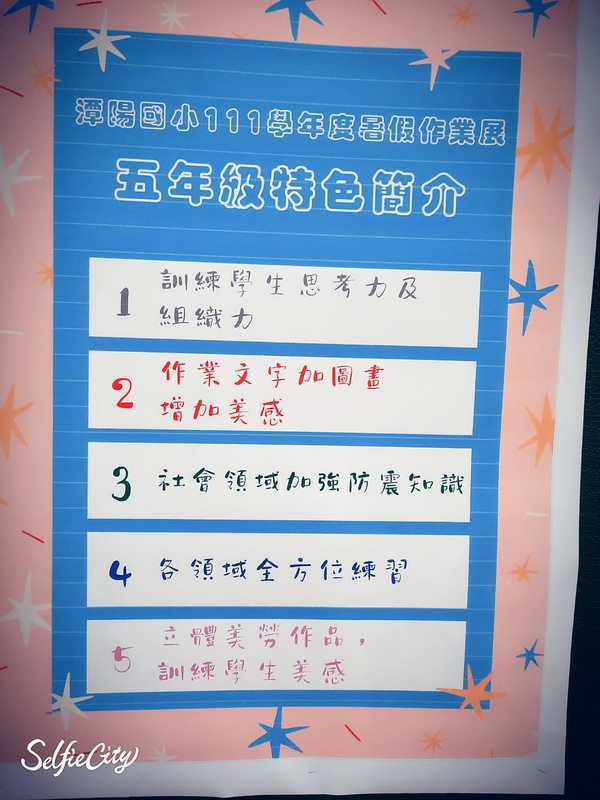 潭陽國小111學年度暑假作業展
五年級特色簡介
1 訓練學生思考力及
組織力
2 作業文字加圖畫
增加美感
3 社會領域加強防震知識
4 各領域全方位練習
5 立體美勞作品，
訓練學生美感
SelfieCity